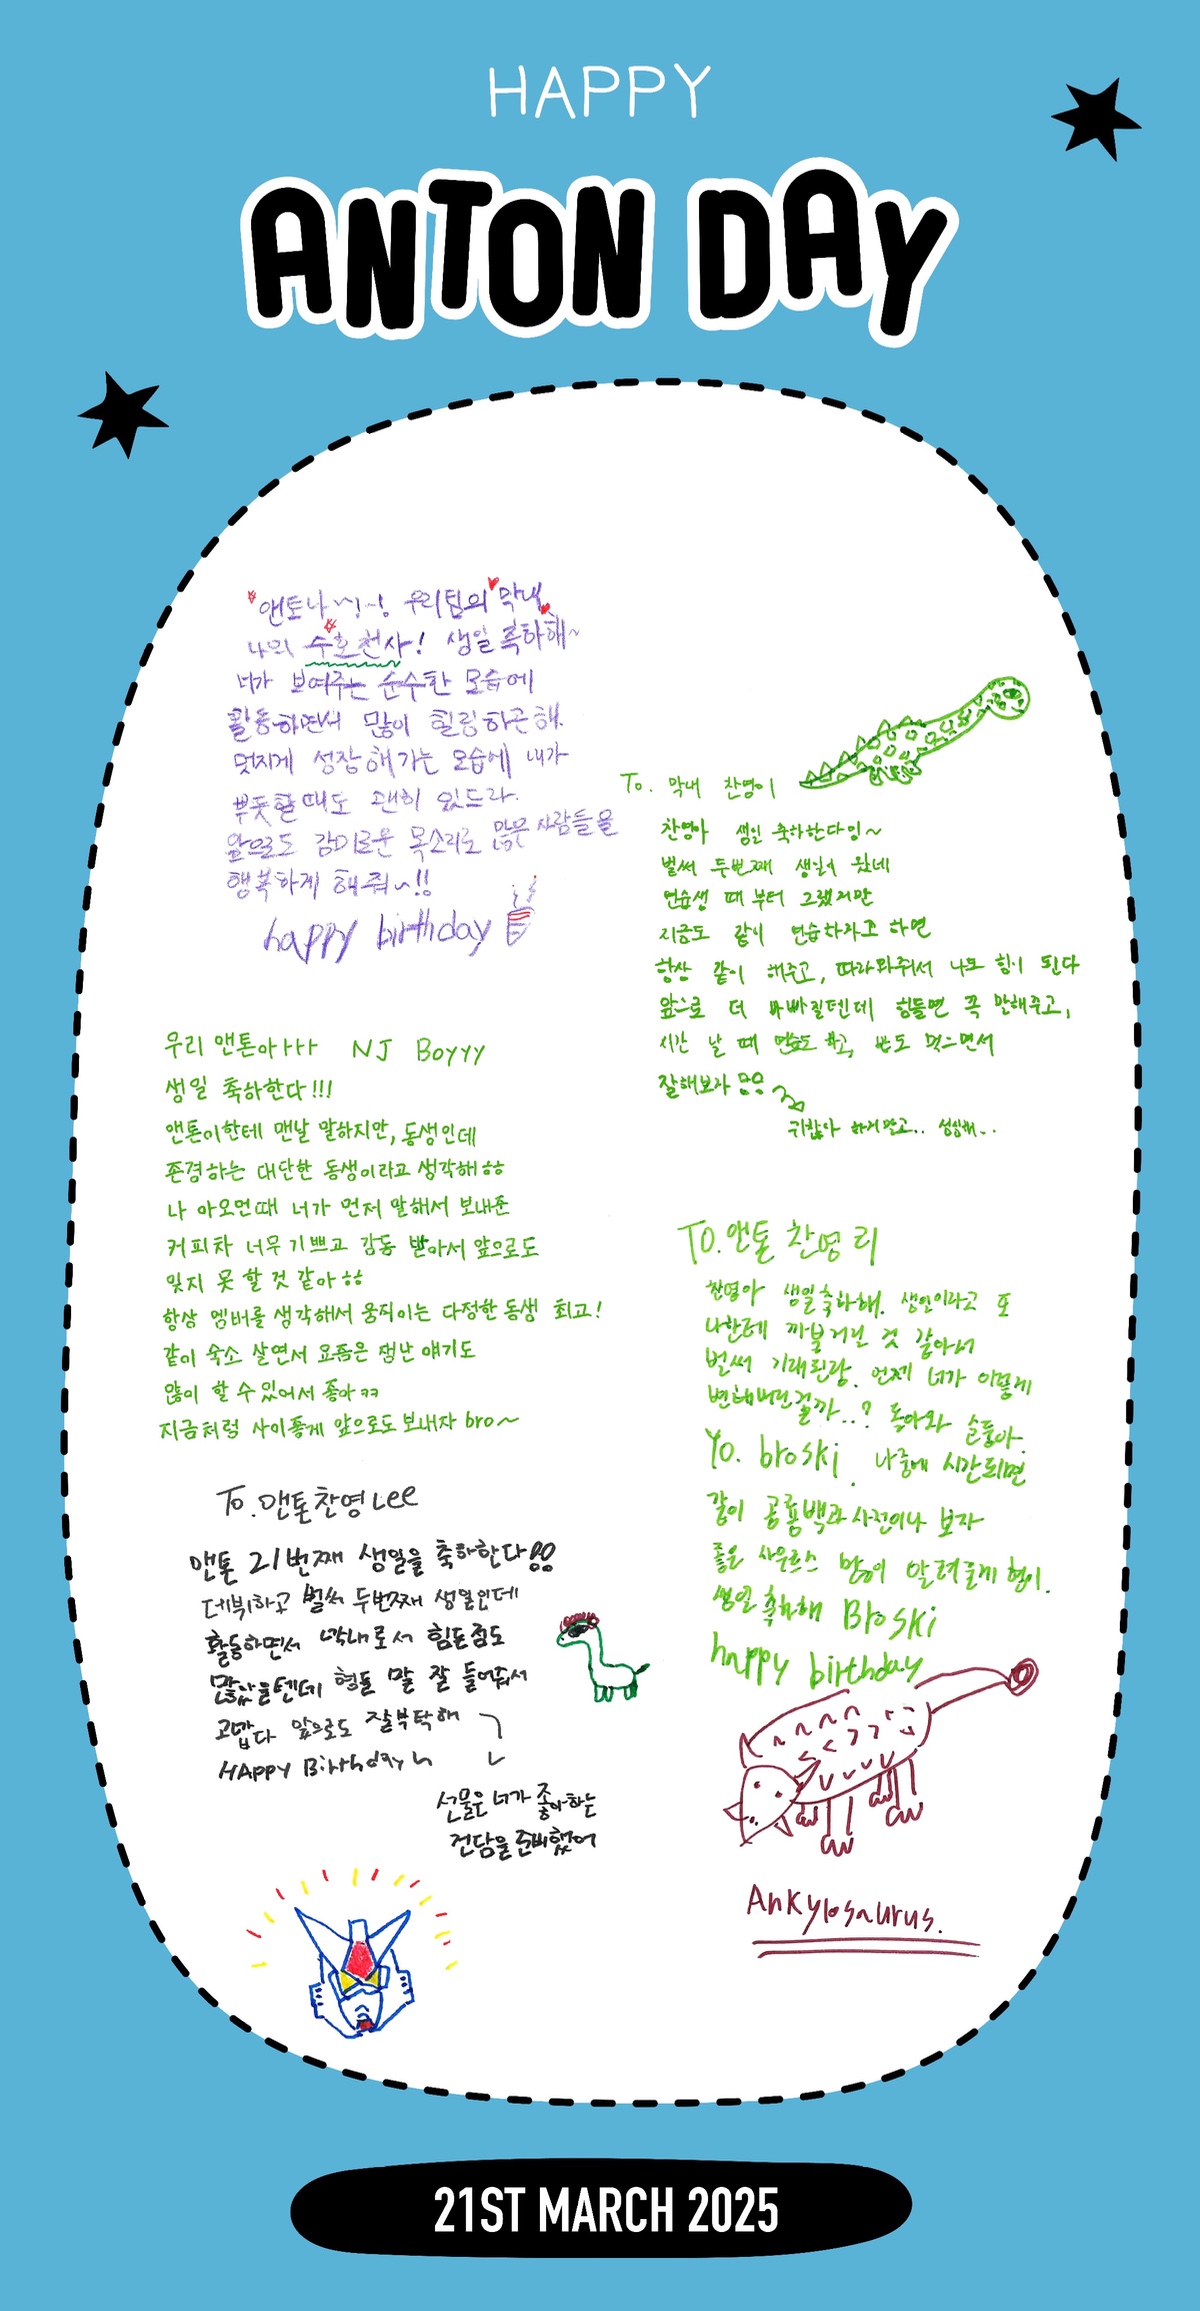 HAPPY
ANTON DAY
앤토나~!~! 우리팀의 막내
나의 수호천사! 생일 축하해~
너가 보여주는 순수한 모습에
활동하면서 많이 힐링하곤해.
멋지게 성장해가는 모습에 내가
뿌듯할때도 괜히 있드라.
앞으로도 감미로운 목소리로 많은 사람들을
행복하게 해줘~!!
happy birthday
To. 막내 찬영이
찬영아 생일 축하한다잉~
벌써 두번째 생일이 왔네
연습생 때부터 그랬지만
지금도 같이 연습하자고 하면
항상 같이 해주고, 따라와줘서 나도 힘이 된다
앞으로 더 바빠질텐데 힘들면 꼭 말해주고,
시간 날 때 연습도 하고, 밥도 먹으면서
잘해보자
귀찮아 하지말고..
우리 앤톤아ㅏㅏㅏ NJ Boyyy
생일 축하한다!!!
앤톤이한테 맨날 말하지만, 동생인데
존경하는 대단한 동생이라고 생각해ㅎㅎ
나 아오먼때 너가 먼저 말해서 보내준
커피차 너무 기쁘고 감동 받아서 앞으로도
잊지 못 할 것 같아ㅎㅎ
항상 멤버를 생각해서 움직이는 다정한 동생 최고!
같이 숙소 살면서 요즘은 장난 얘기도
많이 할 수 있어서 좋아ㅋㅋ
지금처럼 사이좋게 앞으로도 보내자 bro~
TO. 앤톤 찬영 리
찬영아 생일축하해. 생일이라고 또
나한테 까불거린 것 같아서
벌써 기대된당. 언제 너가 이렇게
변해버린걸까..? 돌아와 손톤아.
Yo. broski. 나중에 시간되면
같이 공룡백과사전이나 보자
좋은 사우르스 많이 알려줄게 형이.
생일 축하해 Broski
happy birthday
Ankylosaurus.
To. 앤톤찬영 Lee
앤톤 21번째 생일을 축하한다!!
데뷔하고 벌써 두번째 생일인데
활동하면서 막내로서 힘든점도
많았을텐데 형들 말 잘 들어줘서
고맙다 앞으로도 잘부탁해
HAppy Birthday
선물은 너가 좋아하는
건담을 준비했어
21ST MARCH 2025